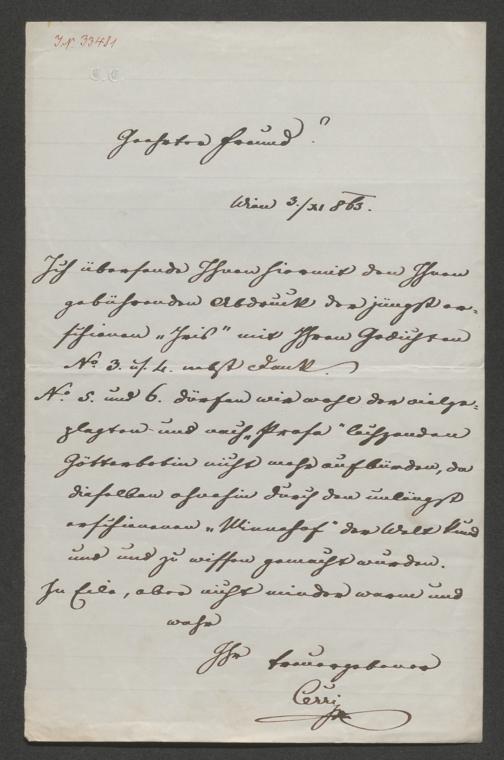 I.N. 33481
C.C
Geehrter Freund!
Wien 3./XI 863.
Ich übersende Ihnen hiermit den Ihnen
gebührenden Abdruck der jüngst er-
schienen „Iris" mit Ihren Gedichten
No 3. u. 4. nebst Dank.
No 5. und 6. dürfen wir wohl der vielge-
plagten und nach „Prosa" lechzenden
Götterbotin nicht mehr aufbürden, da
dieselben ohnehin durch den unlängst
erschienenen „Minnehof" der Welt kund
und zu wissen gemacht wurden.
In Eile, aber nicht minder warm und
wahr
Ihr treuergebener
Cerri